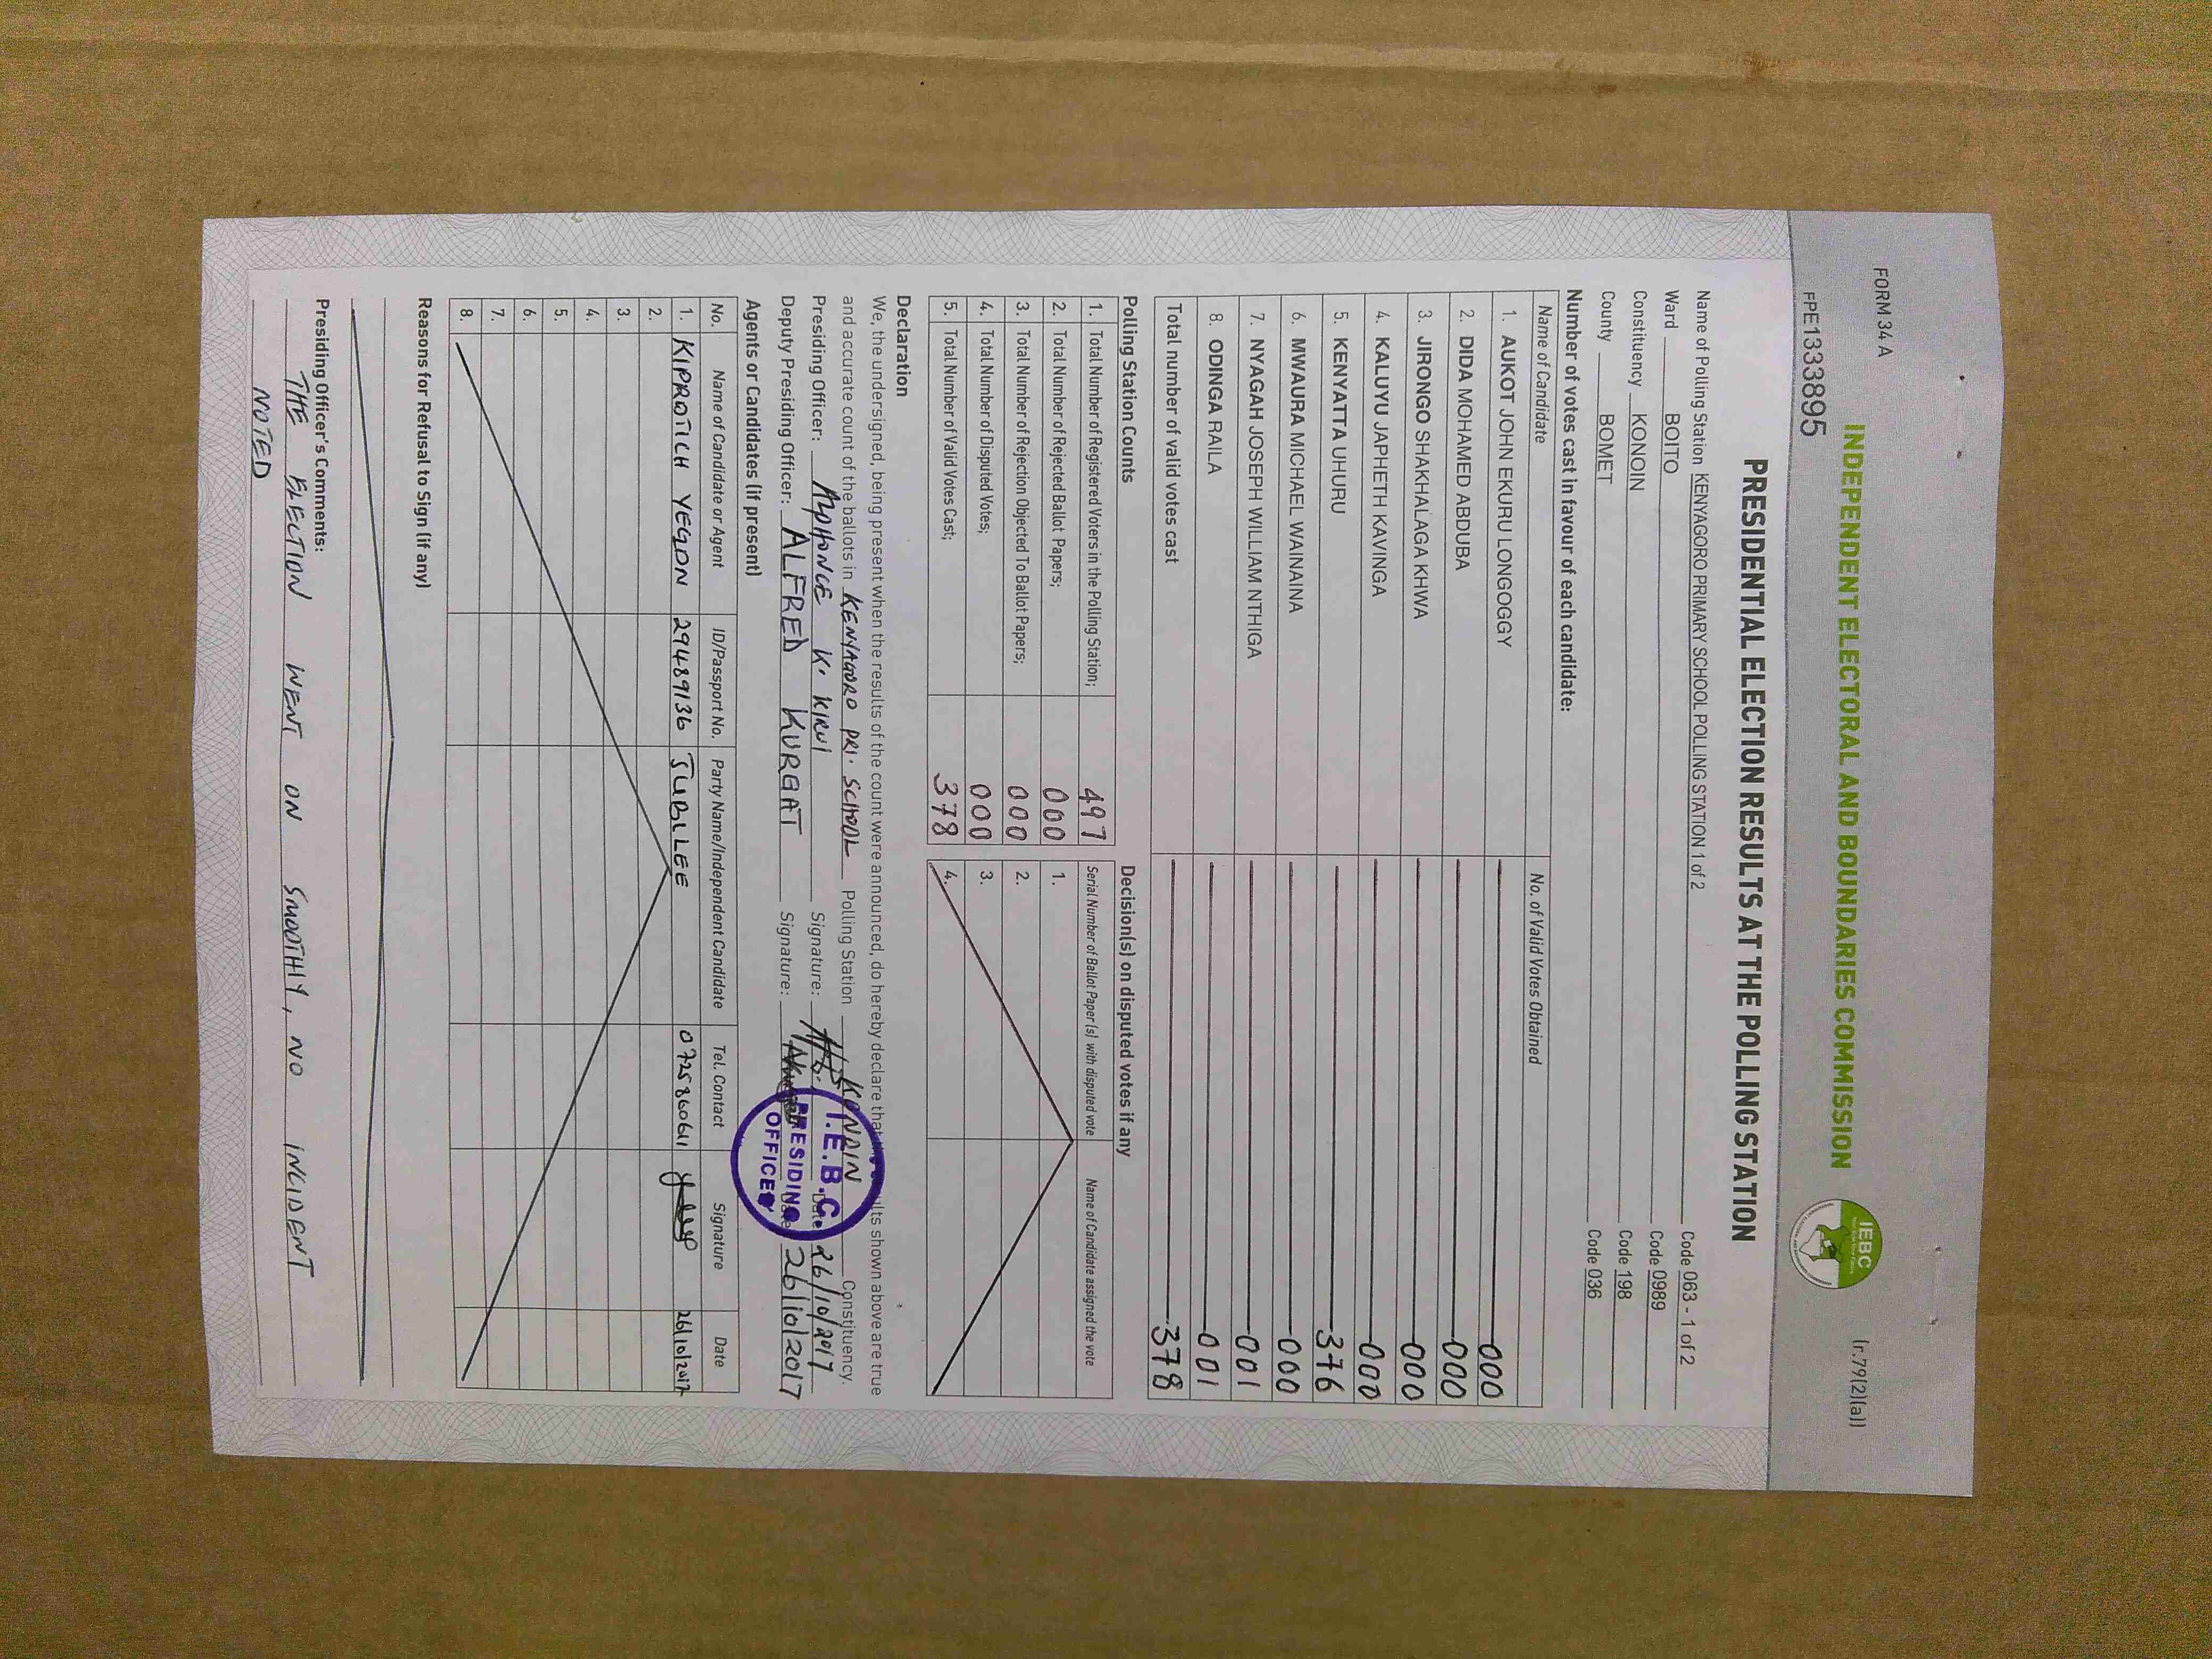 FORM 34 A
(r.79(2)(a))
INDEPENDENT ELECTORAL AND BOUNDARIES COMMISSION
IEBC
FPE1333895
PRESIDENTIAL ELECTION RESULTS AT THE POLLING STATION
Name of Polling Station KENYAGORO PRIMARY SCHOOL POLLING STATION 1 of 2 Code 063 - 1 of 2
Ward BOITO Code 0989
Constituency KONOIN Code 198
County BOMET Code 036
Number of votes cast in favour of each candidate:
Name of Candidate No. of Valid Votes Obtained
1. AUKOT JOHN EKURU LONGOGGY 000
2. DIDA MOHAMED ABDUBA 000
3. JIRONGO SHAKHALAGA KHWA 000
4. KALUYU JAPHETH KAVINGA 000
5. KENYATTA UHURU 376
6. MWAURA MICHAEL WAINAINA 000
7. NYAGAH JOSEPH WILLIAM NTHIGA 001
8. ODINGA RAILA 001
Total number of valid votes cast 378
Polling Station Counts
1. Total Number of Registered Voters in the Polling Station; 497
2. Total Number of Rejected Ballot Papers; 000
3. Total Number of Rejection Objected To Ballot Papers; 000
4. Total Number of Disputed Votes; 000
5. Total Number of Valid Votes Cast; 378
Decision(s) on disputed votes if any
Serial Number of Ballot Paper (s) with disputed vote Name of Candidate assigned the vote
1.
2.
3.
4.
Declaration
We, the undersigned, being present when the results of the count were announced, do hereby declare that the results shown above are true
and accurate count of the ballots in KENYAGORO PRI. SCHOOL Polling Station KONOIN Constituency.
Presiding Officer: ALPHONCE K. KIRUI Signature: Date 26/10/2017
Deputy Presiding Officer: ALFRED KURGAT Signature: Date 26/10/2017
I.E.B.C.
PRESIDING
OFFICER
Agents or Candidates (if present)
No. Name of Candidate or Agent ID/Passport No. Party Name/Independent Candidate Tel. Contact Signature Date
1. KIPROTICH YEGON 29489136 JUBILEE 0725860611 26/10/2017
2.
3.
4.
5.
6.
7.
8.
Reasons for Refusal to Sign (if any)
Presiding Officer's Comments:
THE ELECTION WENT ON SMOOTHLY, NO INCIDENT
NOTED